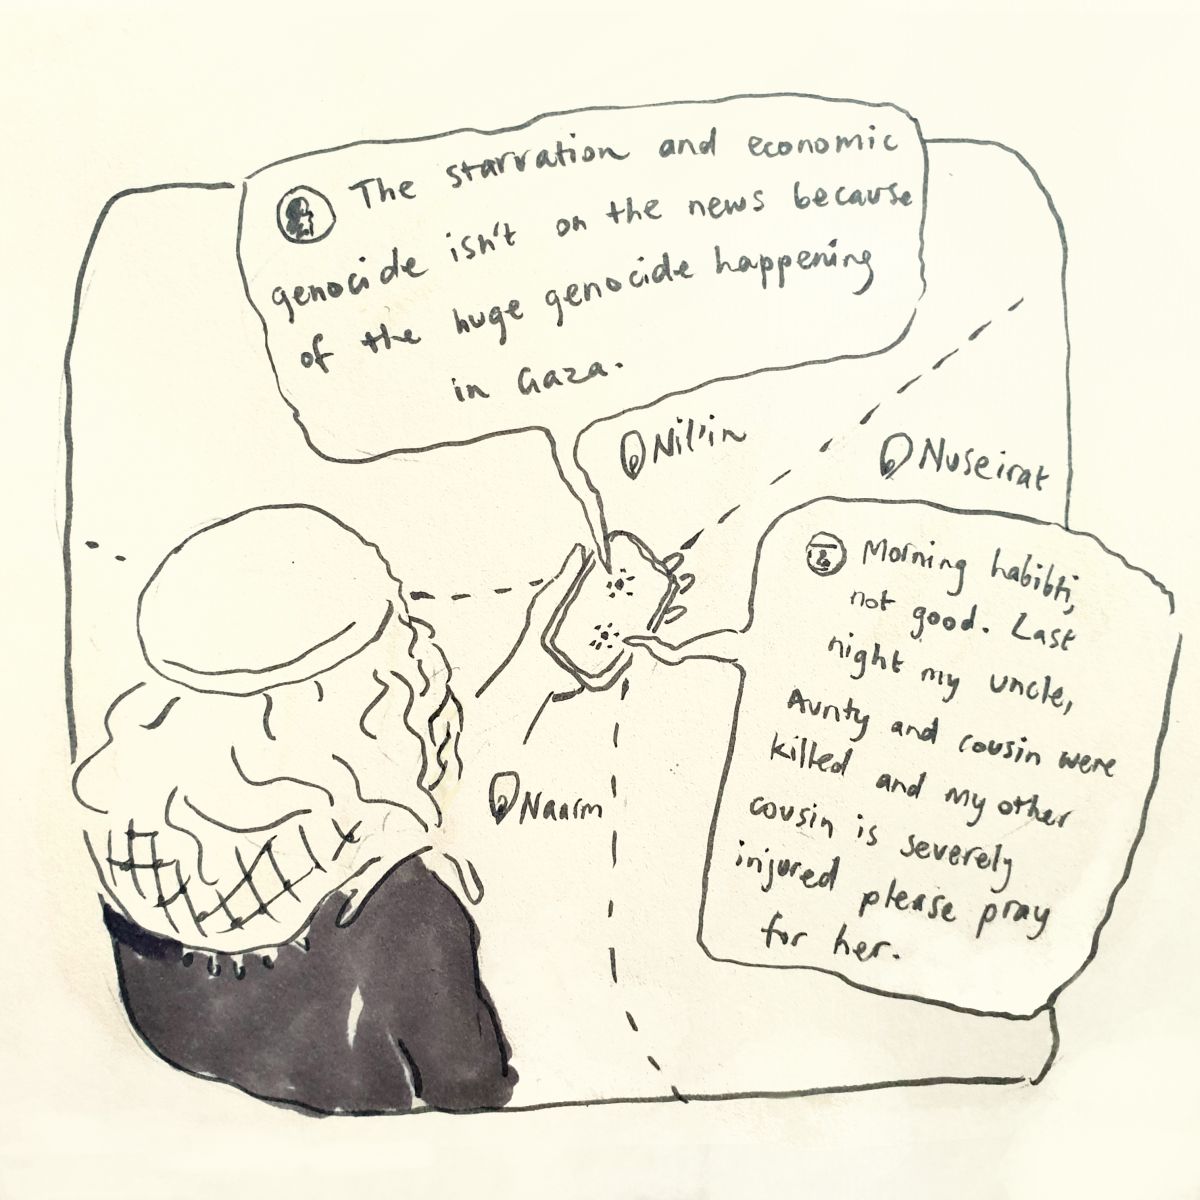 The starvation and economic
genocide isn't on the news because
of the huge genocide happening
in Gaza.
Nil'in
Nuseirat
Morning habibti,
not good. Last
night my uncle,
Aunty and cousin were
killed and my other
cousin is severely
injured please pray
for her.
Naarm